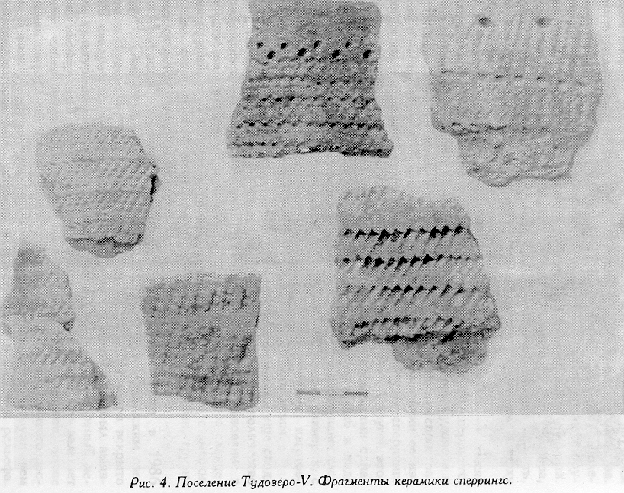 Рис. 4. Поселение Тудозеро-V. Фрагменты керамики сперрингс.